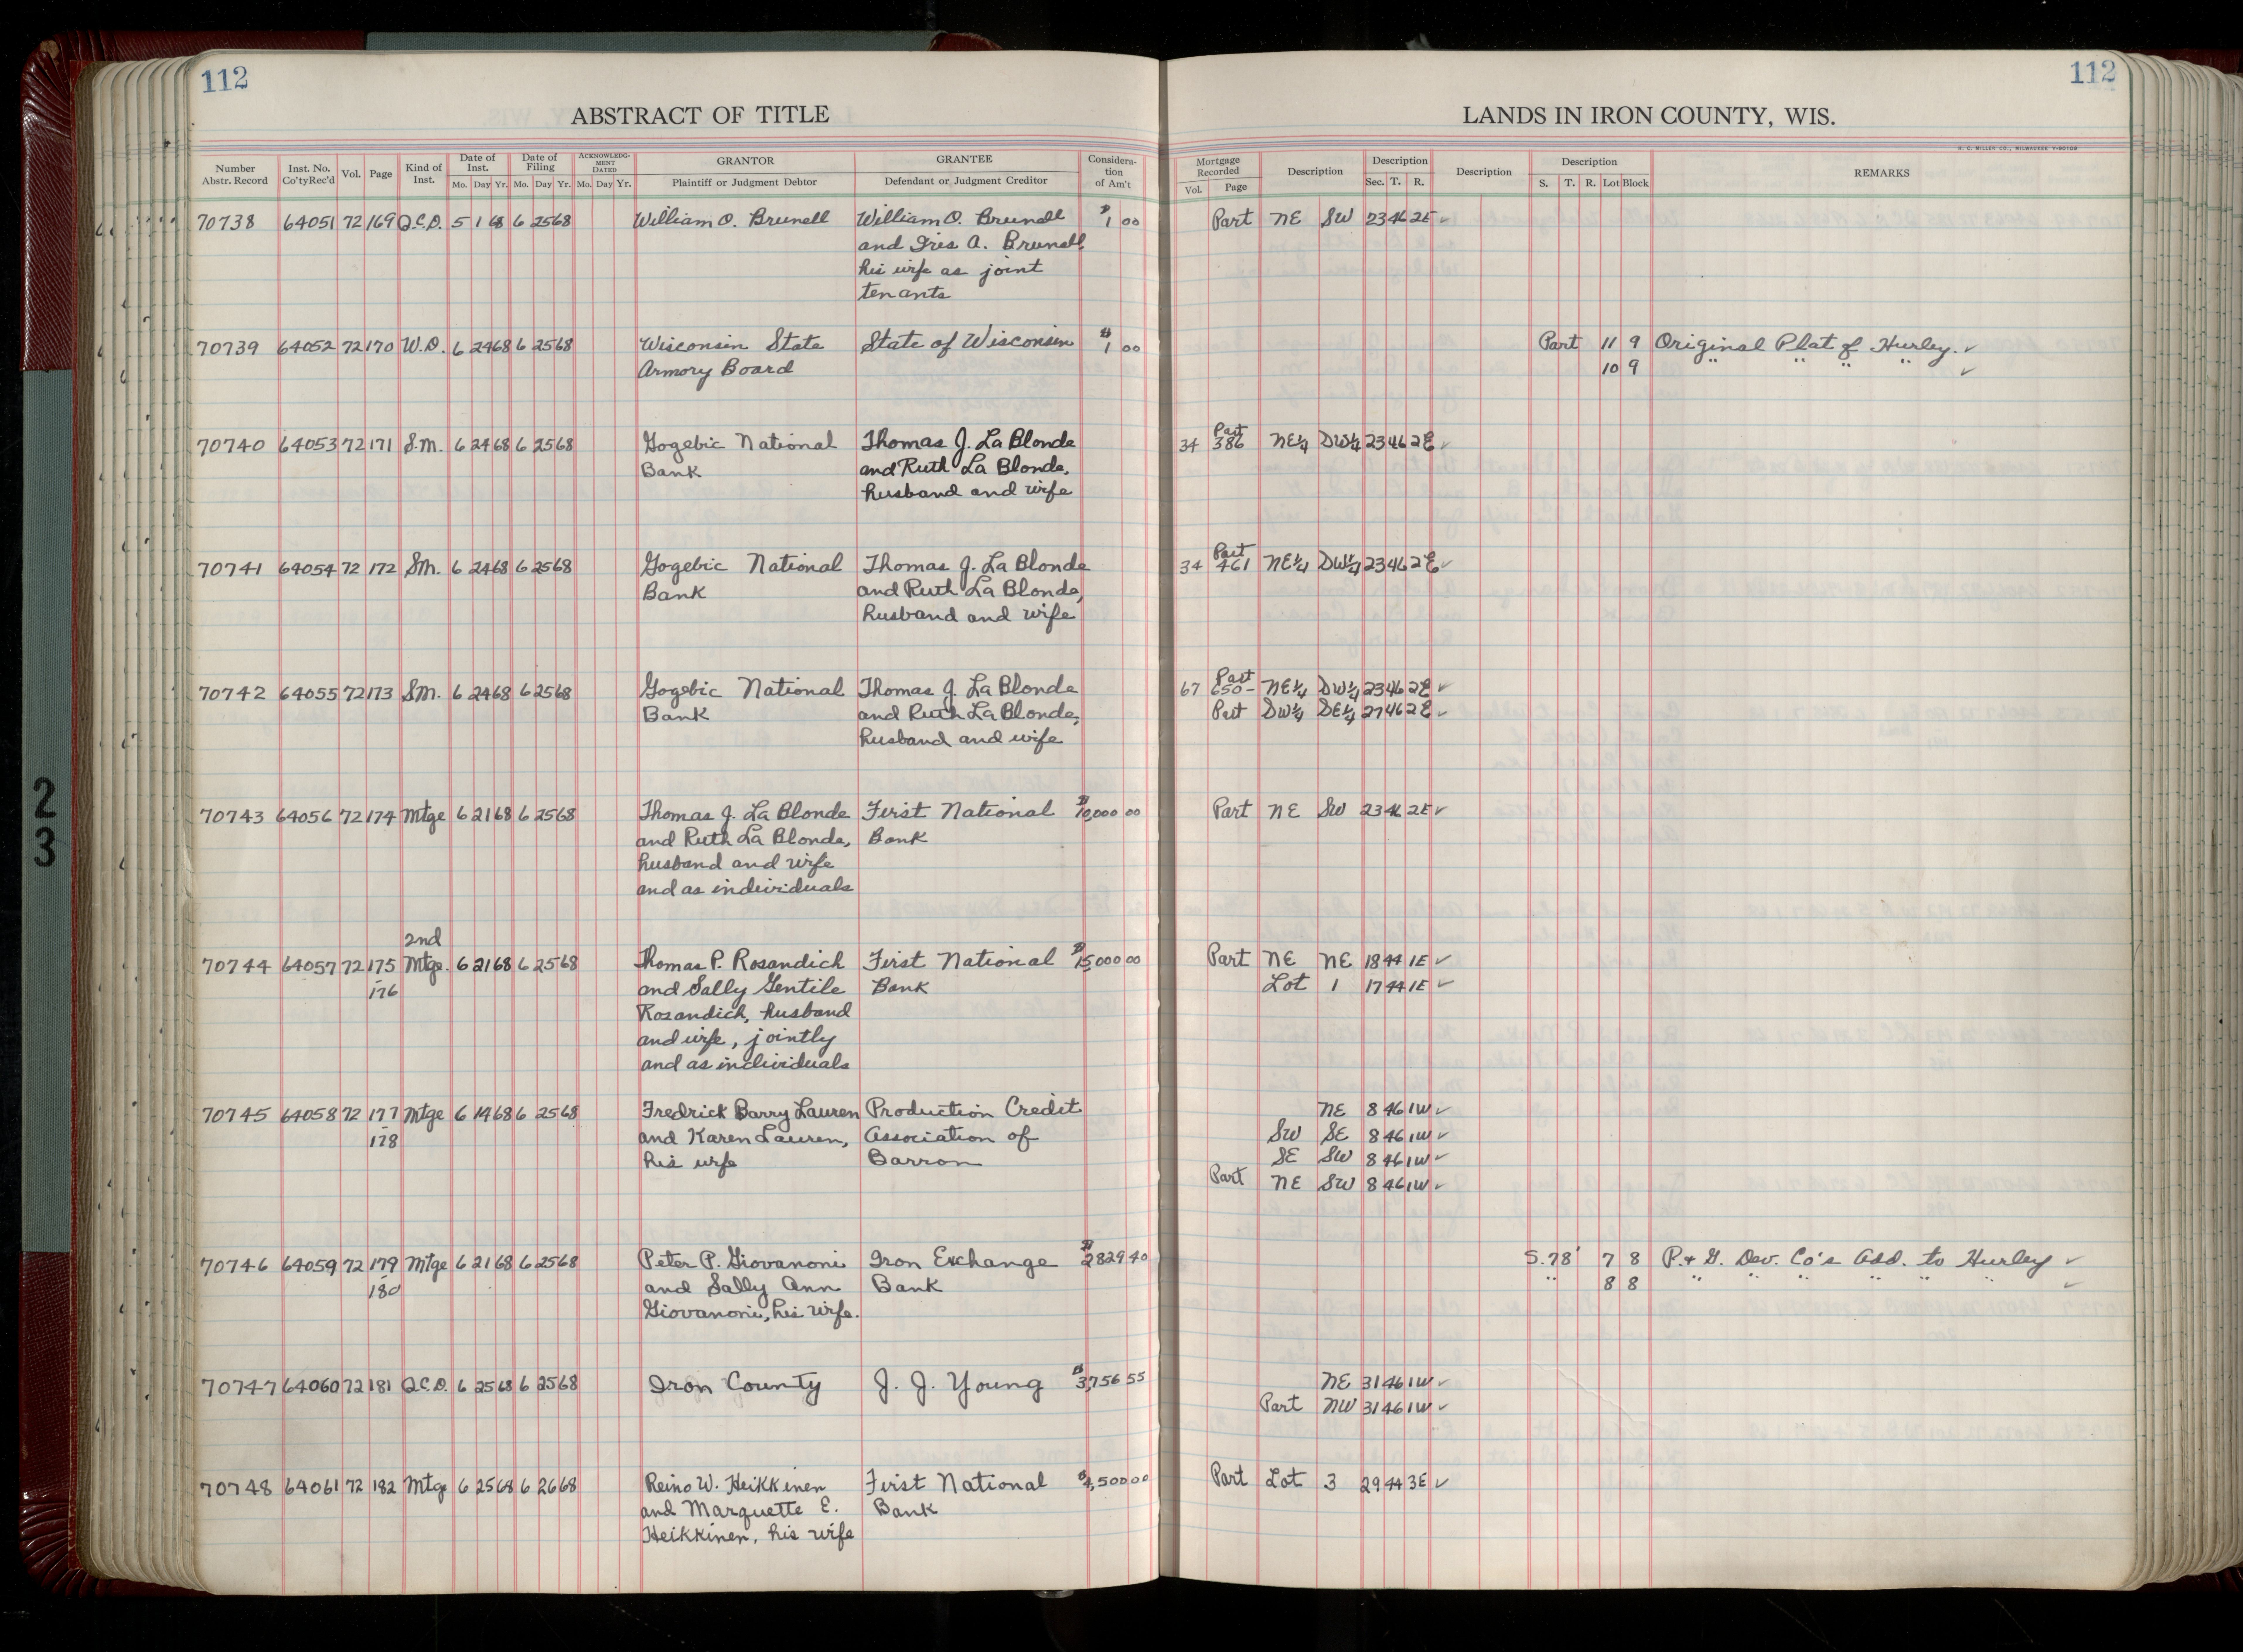 112
112
ABSTRACT OF TITLE
LANDS IN IRON COUNTY, WIS.
H. C. MILLER CO., MILWAUKEE
Number Abstr. Record Inst. No. Co'ty Rec'd Vol. Page Kind of Inst. Date of Inst. Mo. Day Yr. Date of Filing Mo. Day Yr. ACKNOWLEDGMENT DATED Mo. Day Yr. GRANTOR Plaintiff or Judgment Debtor GRANTEE Defendant or Judgment Creditor Consideration of Am't Mortgage Recorded Vol. Page Description Description Sec. T. R. Description Description S. T. R. Lot Block REMARKS
70738 64051 72 169 Q.C.D. 5 1 68 6 25 68 William O. Brunell William O. Brunell $1 00 Part NE SW 23 46 2E ✓
and Iris A. Brunell
his wife as joint
tenants
70739 64052 72 170 W.D. 6 24 68 6 25 68 Wisconsin State State of Wisconsin $1 00 Part 11 9 Original Plat of Hurley. ✓
Armory Board 10 9 " " " " ✓
70740 64053 72 171 S.M. 6 24 68 6 25 68 Gogebic National Thomas J. La Blonde 34 Part 386 NE¼ SW¼ 23 46 2E ✓
Bank and Ruth La Blonde,
husband and wife
70741 64054 72 172 S.M. 6 24 68 6 25 68 Gogebic National Thomas J. La Blonde 34 Part 461 NE¼ SW¼ 23 46 2E ✓
Bank and Ruth La Blonde,
husband and wife
70742 64055 72 173 S.M. 6 24 68 6 25 68 Gogebic National Thomas J. La Blonde 67 Part 650- NE¼ SW¼ 23 46 2E ✓
Bank and Ruth La Blonde, Part SW¼ SE¼ 27 46 2E ✓
husband and wife
70743 64056 72 174 Mtge 6 21 68 6 25 68 Thomas J. La Blonde First National $10,000 00 Part NE SW 23 46 2E ✓
and Ruth La Blonde, Bank
husband and wife
and as individuals
2nd
70744 64057 72 175 Mtge. 6 21 68 6 25 68 Thomas P. Rosandich First National $15,000 00 Part NE NE 18 44 1E ✓
-176 and Sally Gentile Bank Lot 1 17 44 1E ✓
Rosandich, husband
and wife, jointly
and as individuals
70745 64058 72 177 Mtge 6 14 68 6 25 68 Fredrick Barry Lauren Production Credit NE 8 46 1W ✓
-178 and Karen Lauren, Association of SW SE 8 46 1W ✓
his wife Barron SE SW 8 46 1W ✓
Part NE SW 8 46 1W ✓
70746 64059 72 179 Mtge 6 21 68 6 25 68 Peter P. Giovanoni Iron Exchange $2829 40 S.78' 7 8 P. & G. Dev. Co's Add. to Hurley ✓
-180 and Sally Ann Bank " 8 8 " " " " " " ✓
Giovanoni, his wife.
70747 64060 72 181 Q.C.D. 6 25 68 6 25 68 Iron County J. J. Young $3,756 55 NE 31 46 1W ✓
Part NW 31 46 1W ✓
70748 64061 72 182 Mtge 6 25 68 6 26 68 Reino W. Heikkinen First National $4,500 00 Part Lot 3 29 44 3E ✓
and Marquette E. Bank
Heikkinen, his wife
2
3